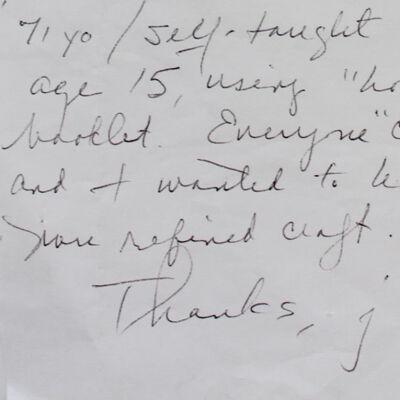 71 yo / self-taught
age 15, using "ho
booklet. Everyone"
and I wanted to le
more refined craft.
Thanks, j